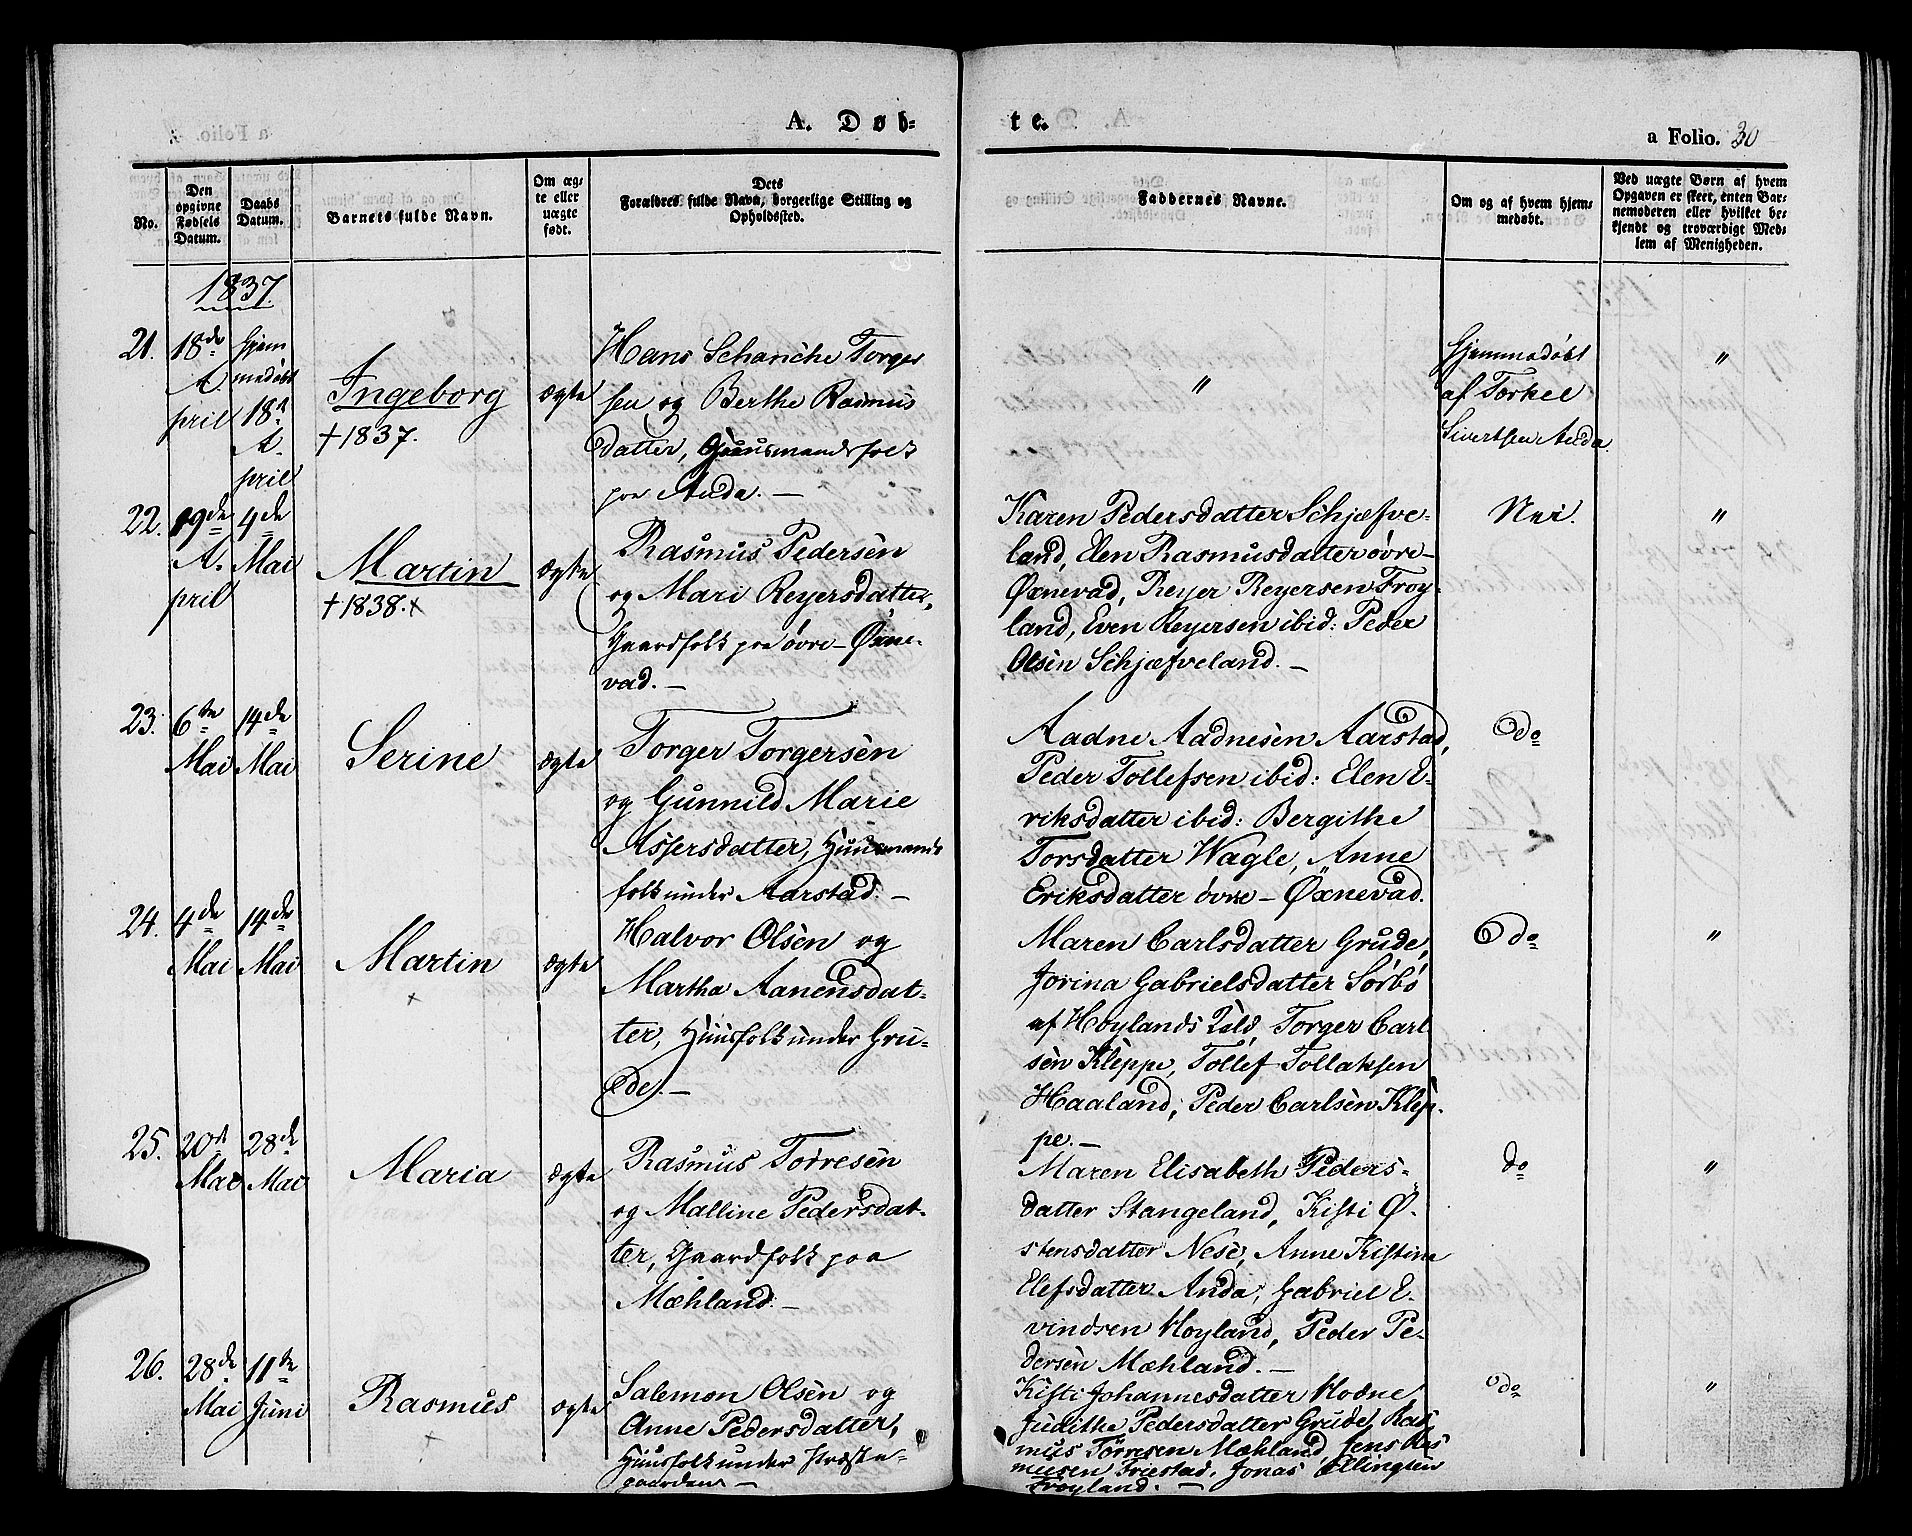 A. Døb-
te.
a Folio. 30
No.
Den opgivne Fødsels Datum.
Daabs Datum.
Barnets fulde Navn.
Om ægte eller uægte født.
Dets
Forældres fulde Navn, borgerlige Stilling og
Opholdssted.
Faddernes Navne.
Om og af hvem hjemmedøbt.
Ved uægte Børn af hvem
Opgaven er skeet, enten Barnemoderen
eller hvilket bekjendt
og troværdigt Medlem
af Menigheden.
1837.
21.
18de
A
pril
Hjem
medøbt
18d
A.
pril
Ingeborg
+ 1837.
ægte
Hans Schanche Torger
sen og Berthe Rasmus
datter, Huusmandsfolk
paa Anda. —
"
Hjemmedøbt
af Torkel
Sivertsen Anda
"
22.
19de
A.
pril
4de
Mai
Martin
+ 1838. x
ægte
Rasmus Pedersen
og Mari Reyersdatter,
Gaardfolk paa øvre- Øxne-
vad. —
Karen Pedersdatter Schjæfve-
land, Elen Rasmusdatter øvre-
Øxnevad, Reyer Reyersen Frøy-
land, Even Reyersen ibid: Peder
Olsen Schjæfveland. —
Nei.
"
23.
6te
Mai
14de
Mai
Serine
ægte
Torger Torgersen
og Gunnild Marie
Assersdatter, Huusmands
folk under Aarstad. —
Aadne Aadnesen Aarstad,
Peder Tollefsen ibid: Elen E-
riksdatter ibid: Bergithe
Torsdatter Wagle, Anne
Eriksdatter øvre - Øxnevad.
do
24.
4de
Mai
14de
Mai
Martin
x
ægte
Halvor Olsen og
Martha Aanensdat-
ter, Huusfolk under Gru-
de. —
Maren Carlsdatter Grude,
Jorina Gabrielsdatter Sørbø
af Høylands Torger Carl
sen Kleppe, Tollef Tollaksen
Haaland, Peder Carlsen Klep-
pe. —
do
"
25.
20d
Mai
28de
Mai
Maria
ægte
Rasmus Torresen
og Malline Pedersdat-
ter, Gaardfolk paa
Mæhland. —
Maren Elisabeth Peders-
datter Stangeland, Kisti Ø-
stensdatter Nese, Anne Kistine
Elefsdatter Anda, Gabriel E-
vindsen Høyland, Peder Pe-
dersen Mæhland. —
do
"
26.
28de
Mai
11te
Juni
Rasmus
x
ægte
Salemon Olsen og
Anne Pedersdatter,
Huusfolk under Præste-
gaarden —
Kisti Johannesdatter Hodne,
Judithe Pedersdatter Grude, Ras
mus Torresen Mæhland, Jens Ras
musen Friestad, Jonas Ellingsen
Frøyland. —
do
"